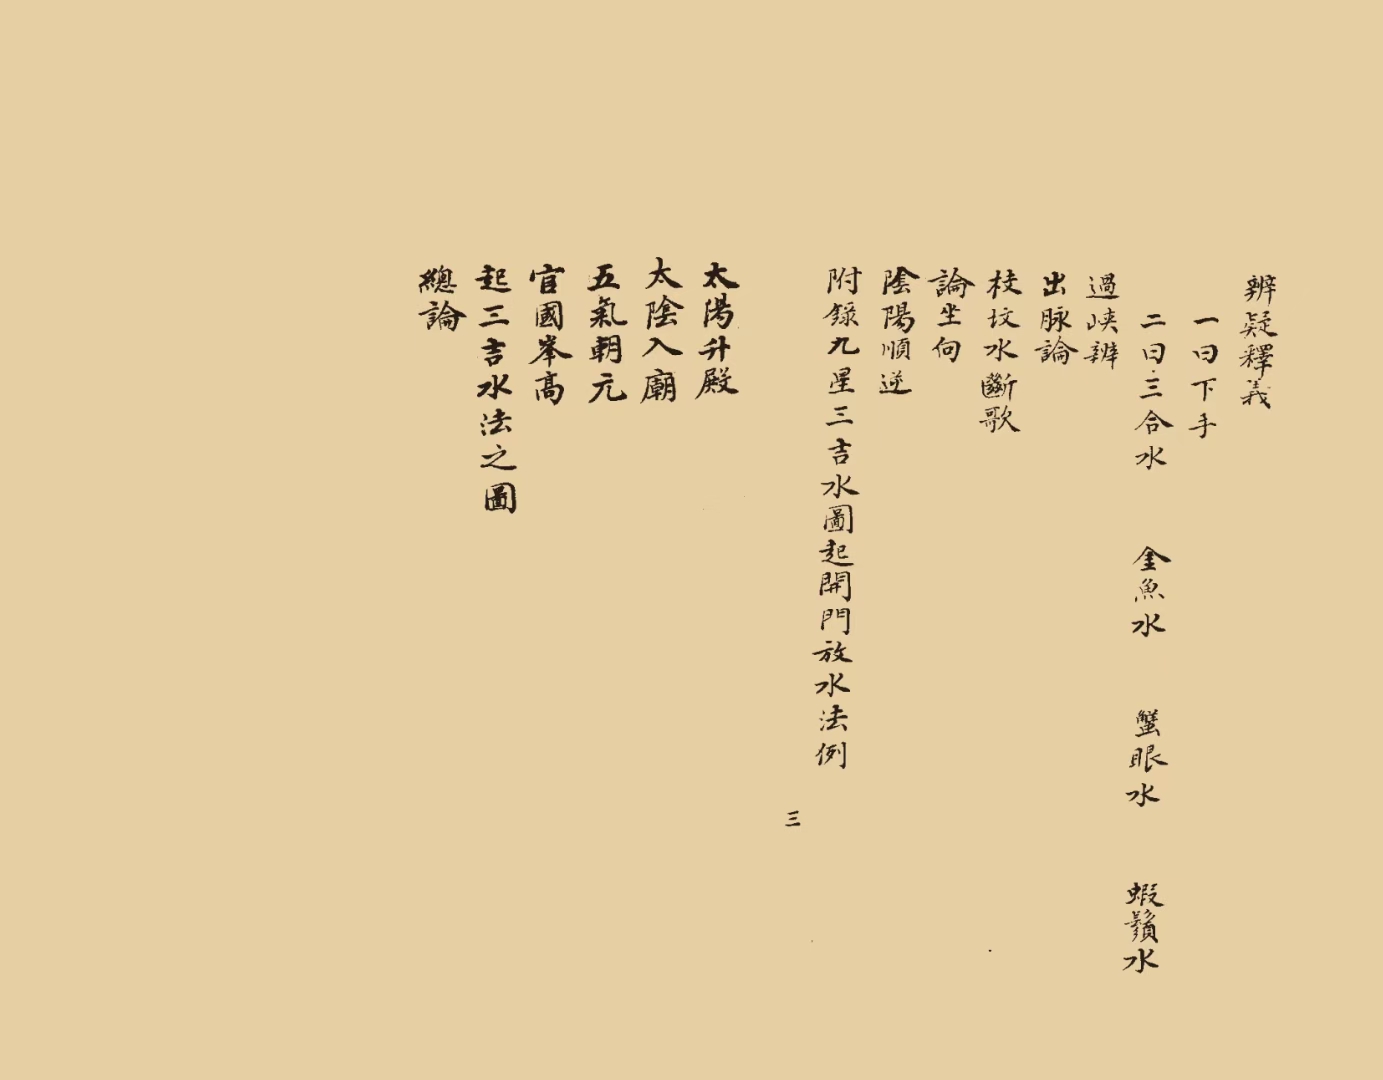 辨疑釋義
一曰下手
二曰三合水 金魚水 蟹眼水 蝦鬚水
過峡辨
出脉論
枝坟水斷歌
論坐向
陰陽順逆
附錄九星三吉水圖起開門放水法例
三
太陽升殿
太陰入廟
五氣朝元
官國峯高
起三吉水法之圖
總論